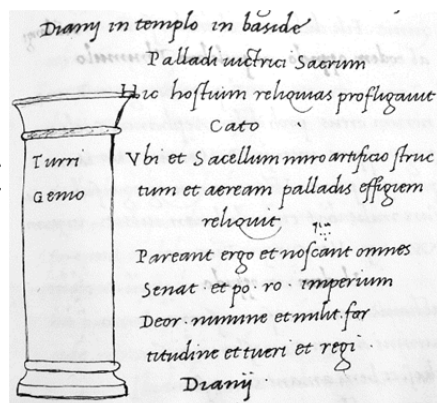 Dianij in templo in baside
Palladi uictrici Sacrum
Hic hostium reliquias profligauit
Cato
Turri
Genio
Vbi et Sacellum miro artificio struc
tum et aeream palladis effigiem
reliquit
Pareant ergo et noscant omnes
Senat · et po · ro · imperium
Deor · numine et milit · for
titudine et tueri et regi ·
Dianij ·